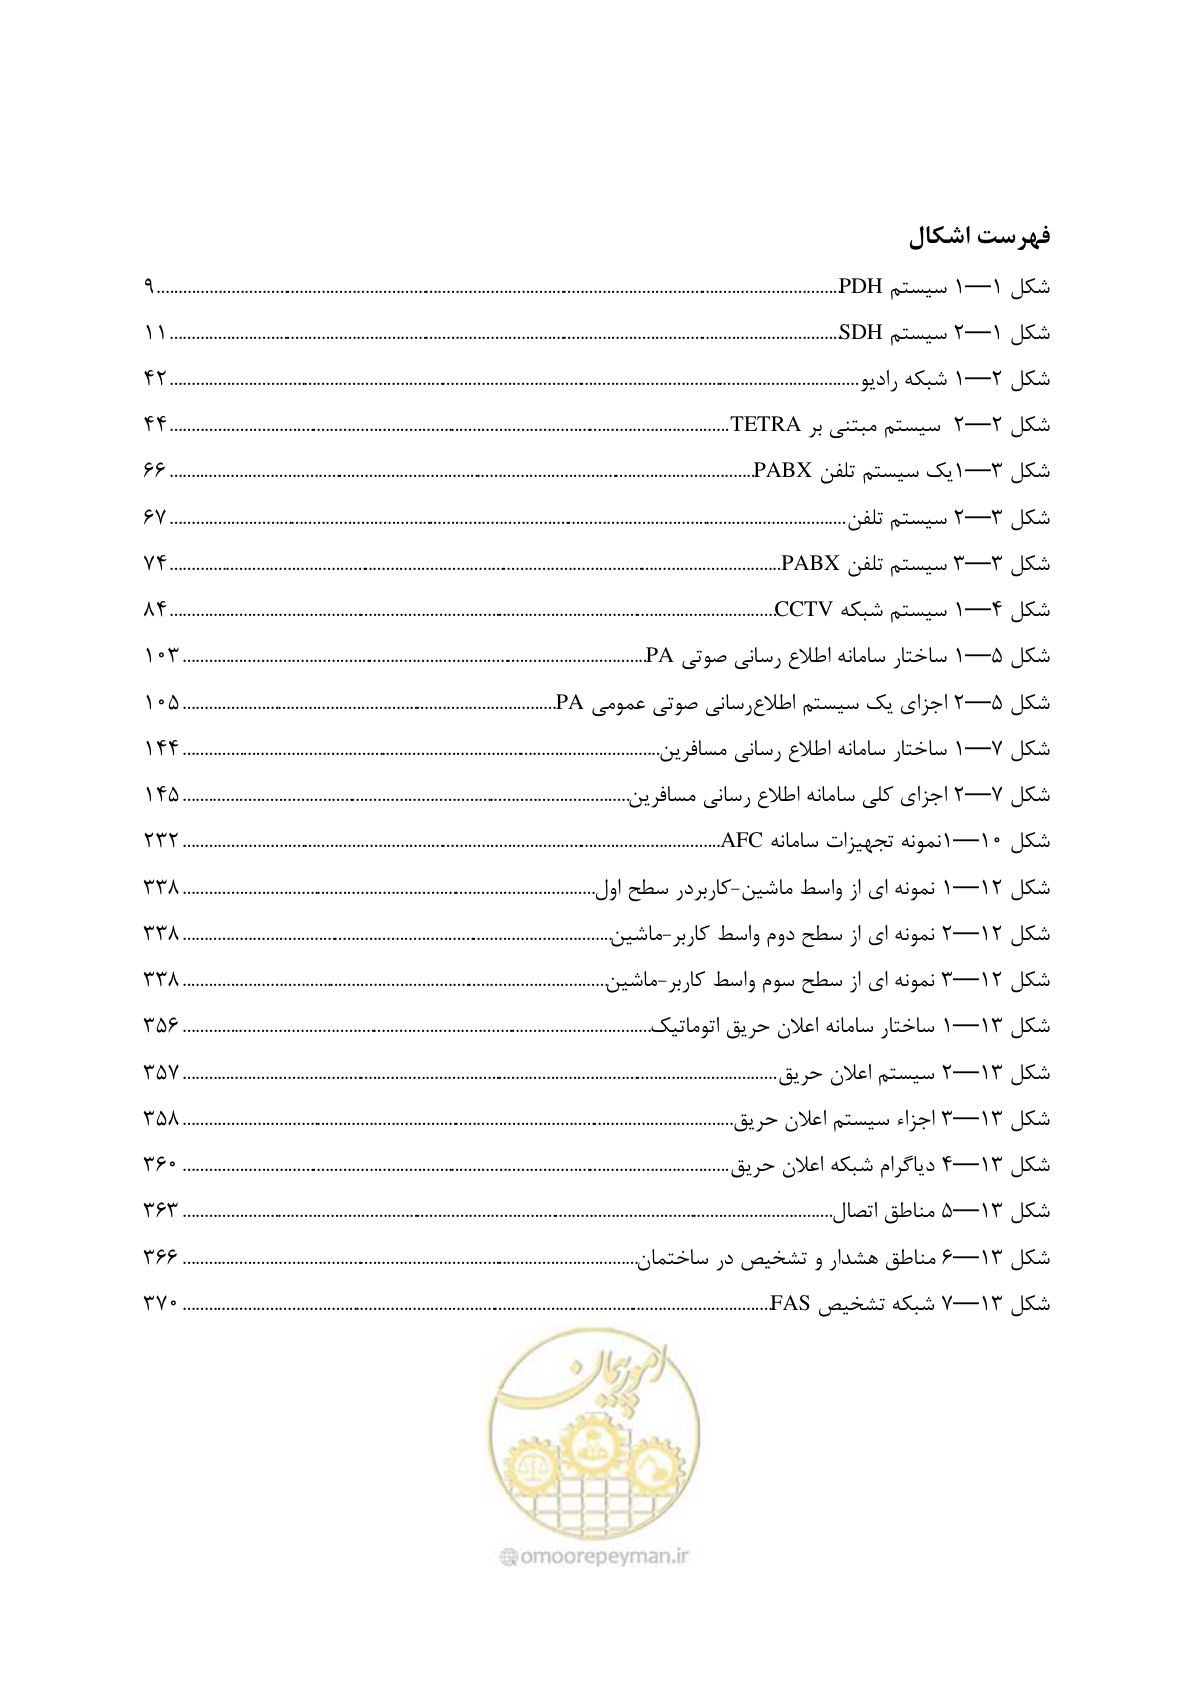 فهرست اشکال
شکل ۱—۱ سیستم PDH ۹
شکل ۱—۲ سیستم SDH ۱۱
شکل ۲—۱ شبکه رادیو ۴۲
شکل ۲—۲ سیستم مبتنی بر TETRA ۴۴
شکل ۳—۱یک سیستم تلفن PABX ۶۶
شکل ۳—۲ سیستم تلفن ۶۷
شکل ۳—۳ سیستم تلفن PABX ۷۴
شکل ۴—۱ سیستم شبکه CCTV ۸۴
شکل ۵—۱ ساختار سامانه اطلاع رسانی صوتی PA ۱۰۳
شکل ۵—۲ اجزای یک سیستم اطلاع‌رسانی صوتی عمومی PA ۱۰۵
شکل ۷—۱ ساختار سامانه اطلاع رسانی مسافرین ۱۴۴
شکل ۷—۲ اجزای کلی سامانه اطلاع رسانی مسافرین ۱۴۵
شکل ۱۰—۱نمونه تجهیزات سامانه AFC ۲۳۲
شکل ۱۲—۱ نمونه ای از واسط ماشین-کاربردر سطح اول ۳۳۸
شکل ۱۲—۲ نمونه ای از سطح دوم واسط کاربر-ماشین ۳۳۸
شکل ۱۲—۳ نمونه ای از سطح سوم واسط کاربر-ماشین ۳۳۸
شکل ۱۳—۱ ساختار سامانه اعلان حریق اتوماتیک ۳۵۶
شکل ۱۳—۲ سیستم اعلان حریق ۳۵۷
شکل ۱۳—۳ اجزاء سیستم اعلان حریق ۳۵۸
شکل ۱۳—۴ دیاگرام شبکه اعلان حریق ۳۶۰
شکل ۱۳—۵ مناطق اتصال ۳۶۳
شکل ۱۳—۶ مناطق هشدار و تشخیص در ساختمان ۳۶۶
شکل ۱۳—۷ شبکه تشخیص FAS ۳۷۰
امور پیمان
@omoorepeyman.ir